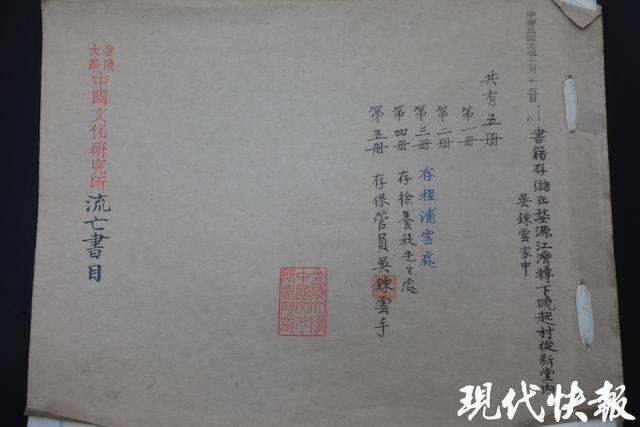 中華民國
書籍存儲在婺源江灣轉下曉起村從新堂內
吳鍊雲家中
共有五册
第一册
第二册
第三册 存程浦雲處
第四册 存徐養秋先生處
第五册 存保管員吳鍊雲手
金陵大學中國文化研究所流亡書目
金陵大學
中國文化
研究所印
現代快報